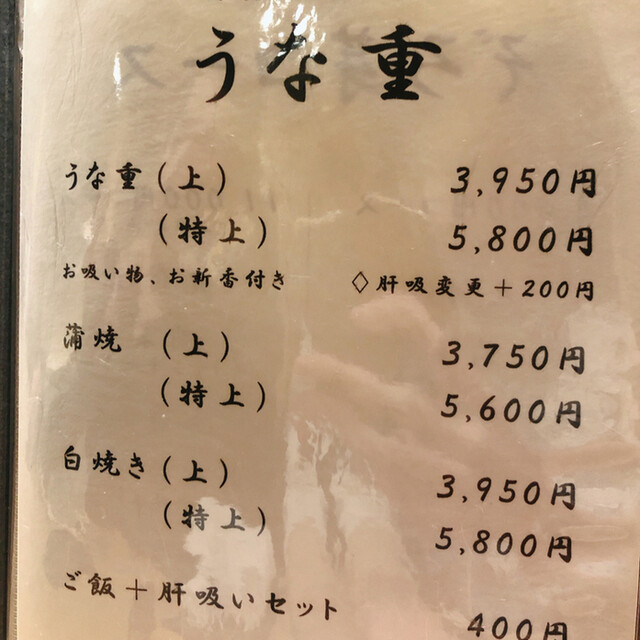 うな重
うな重(上) 3,950円
(特上) 5,800円
お吸い物、お新香付き ◇肝吸変更+200円
蒲焼 (上) 3,750円
(特上) 5,600円
白焼き(上) 3,950円
(特上) 5,800円
ご飯+肝吸いセット 400円